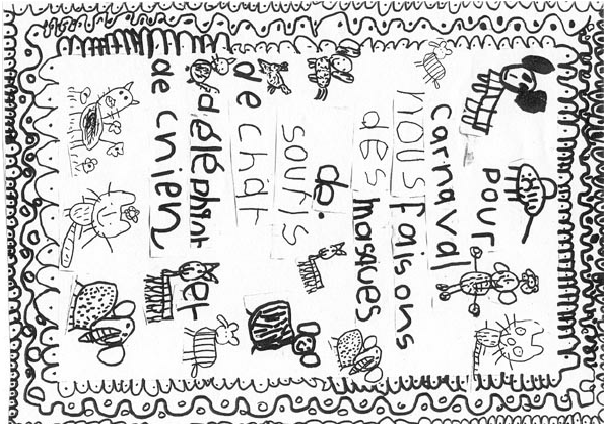 pour
carnaval
nous faisons
des masques
de
souris
de chat
d'éléphant et
de chien